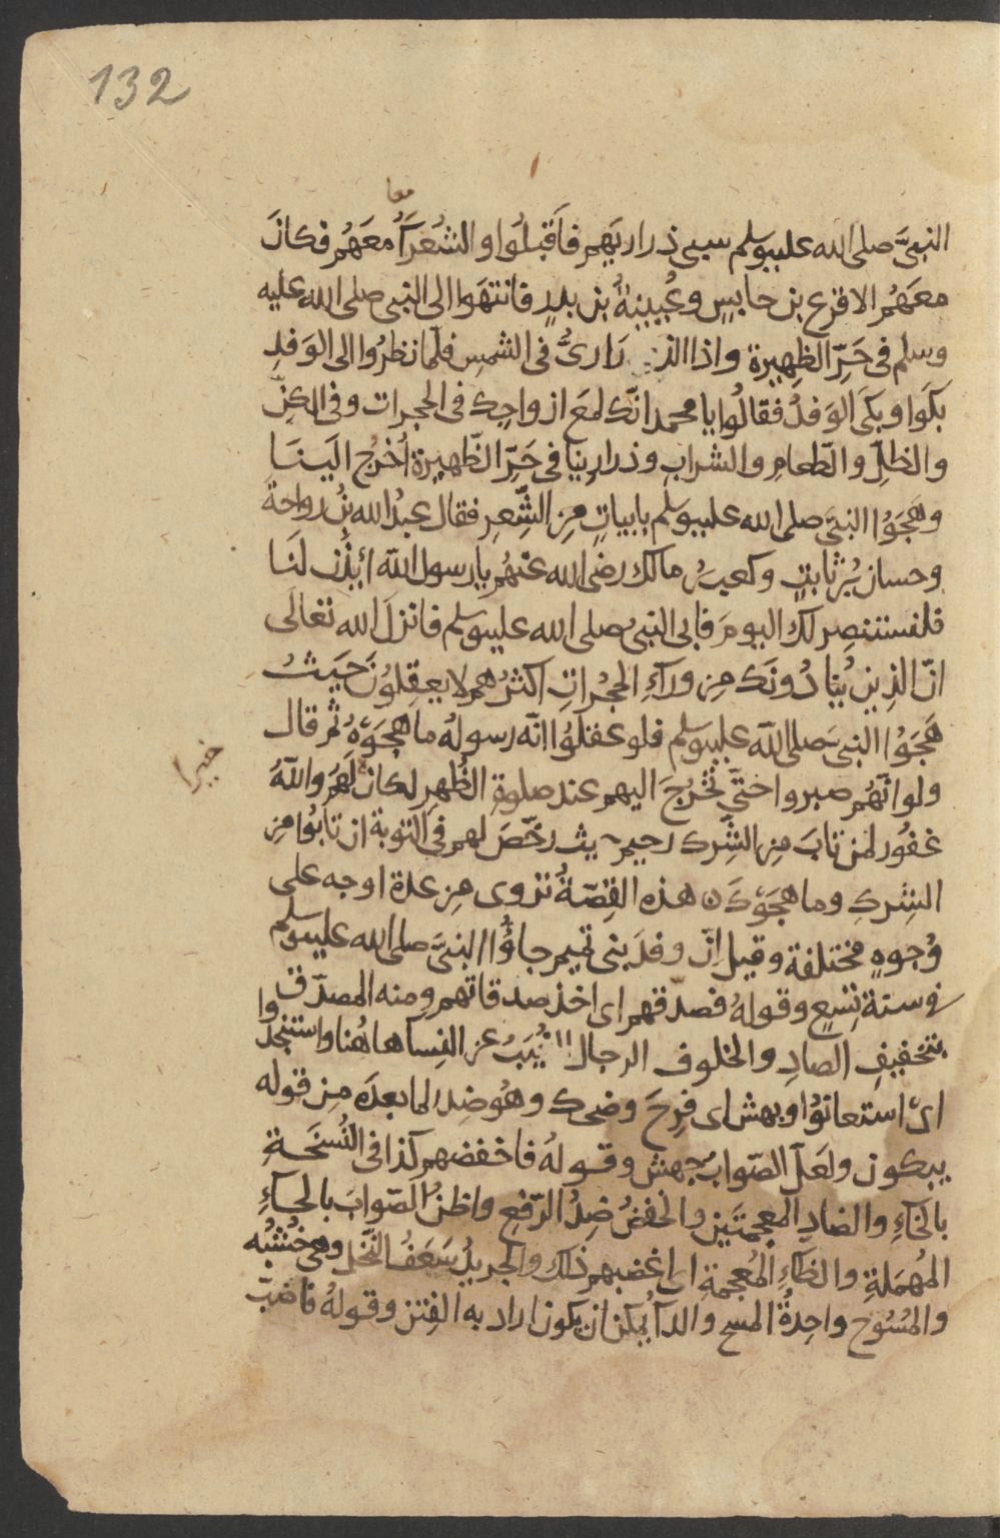 132
معا
النبيَّ صلى الله عليه وسلم سبى ذراريهم فاَقبلُوا والشُعَرَآُ معَهُم فكانَ
معَهُم الاقرع بن حابسٍ وعُيينةُ بن بدرٍ فانتهَوا الى النبي صلى الله عليه
وسلم في حَرِّ الظهِيرة واذا الذراريُّ في الشمسِ فلمّا نظرُوا الى الوَفدِ
بكَوا وبكَى الوَفدُ فقالُوا يا محمد انّك لمعَ ازواجِك في الحجرات وفي الكِنِّ
والظلِّ والطّعامِ والشرابِ وذرارِينا في حَرِّ الظّهيرة اُخرُج الَينَا
وهَجَوُا النبيَّ صلى الله عليه وسلم بابياتٍ مِن الشِّعرِ فقال عبدُ الله بنُ رواحةَ
وحسان بنُ ثابتٍ وكعب بنُ مالك رضي الله عنهُم يا رسول الله ائيذَن لَنا
فلنستنصِر لك اليومَ فابى النبيُّ صلى الله عليه وسلم فانزلَ الله تعَالَى
انّ الذِين يُنادُونَك مِن ورآءِ الحجُراتِ اكثرُهم لا يعقِلوُنَ حَيثُ
هَجَوُا النبيَ صلى الله عليه وسلم فلو عقلُوا انّه رسولُه ما هجَوهُ ثُم قال
ولو انّهُم صبروا حتّي تخرُجَ اليهم عند صلوةِ الظُهرِ لكان لهُم واللّهُ
خيرا
غفُور لمن تابَ مِن الشّرك رحيم حيث رخّصَ لهم في التوبة ان تابُوا مِن
الشِركِ وما هجَوكَ ن هذه القِصّةُ تروى مِن عدة اوجه على
وُجوهٍ مختلفة وقيل انّ وفدَ بني تميم جاؤُا النبيَّ صلى الله عليه وسلم
في سنة تسِعٍ وقولهُ فصدّقهم اى اخذ صدقاتهم ومنه المصدّق
بتخفيفِ الصادِ والخلوف الرجال الغُيَبُ عن النِسا هاهُنا واستنجدُوا
اىْ استعانوُا وبهش اى فرِحَ وضحِك وهُو ضِد لما بعدَه مِن قوله
يبكون ولعَلّ الصّوابَ جهش وقولهُ فاخفضهم كذا في النُسخَةِ
بالخَآءِ والضادِ المعجمتَين والخفضُ ضِدُ الرّفعِ واظنُ الصّوابَ بالحآءِ
المُهمَلةِ والظآءِ المُعجمةِ اى اغضبهم ذلك والجريدُ سَعَفُ النّخل وهي خُشُبُه
والمُسُوح واحِدةُ المسح والدآ يمكن ان يكون اراد به الفِتن وقولهُ فاضبّ